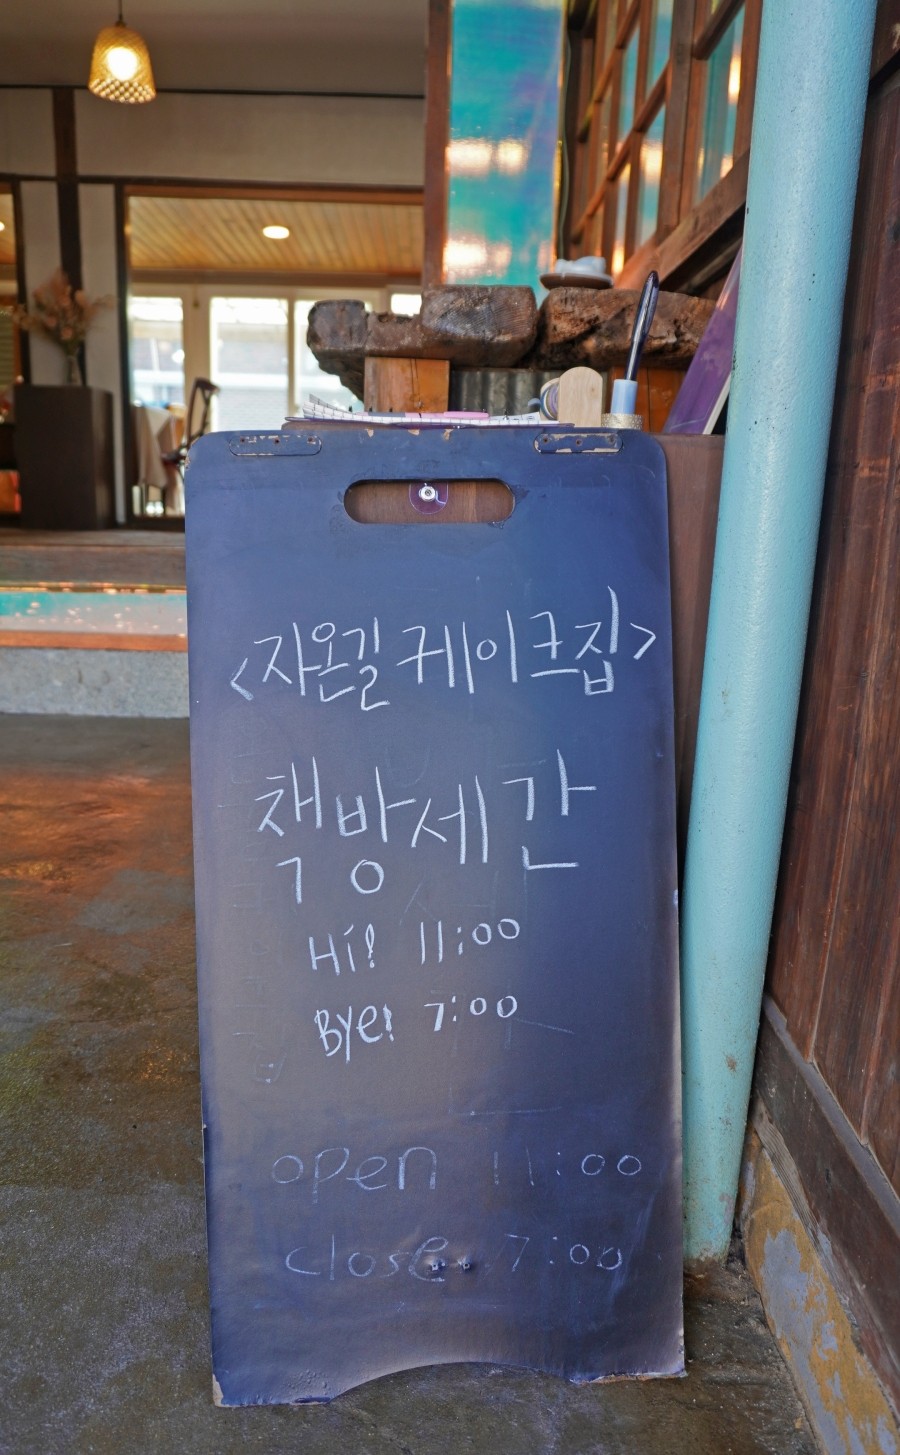 <자온길 케이크집>
책방세간
Hi! 11:00
Bye! 7:00
open 11:00
close 7:00